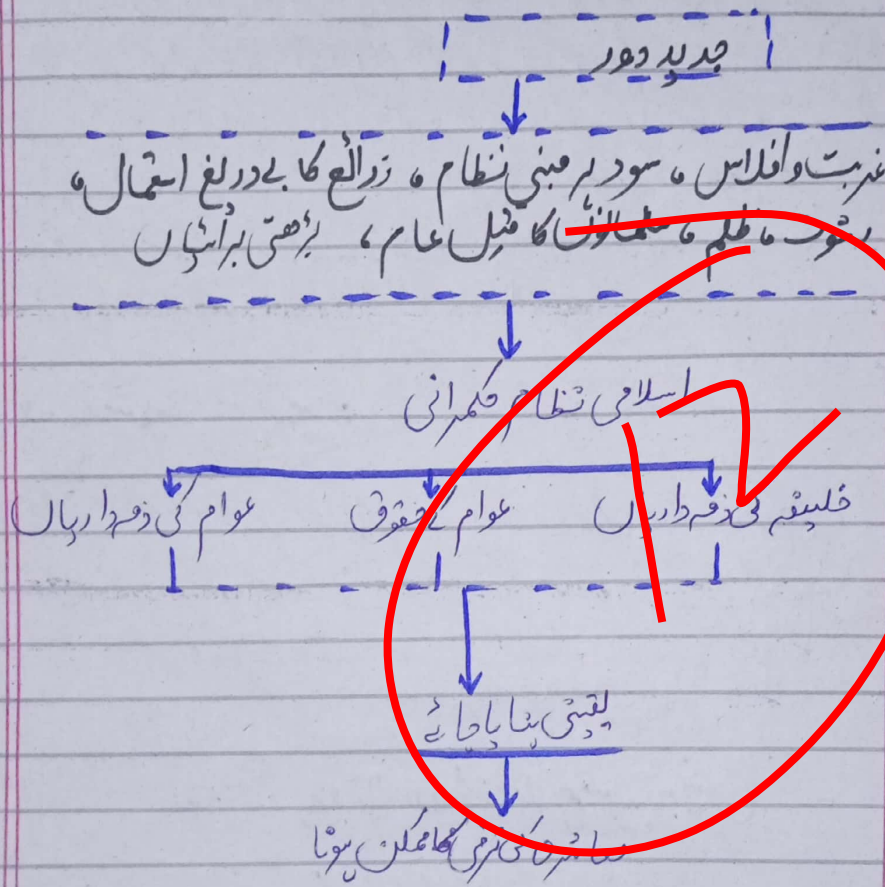 جدید دور
غربت و افلاس، سود پر مبنی نظام، زرائع کا بے دریغ استعمال،
رشوت، ظلم، مسلمانوں کا قتل عام، بڑھتی برائیاں
اسلامی نظام حکمرانی
خلیفہ کی ذمہ داریاں عوام کے حقوق عوام کی ذمہ داریاں
یقینی بنایا جائے
معاشرے کی ترقی کا ممکن ہونا
12